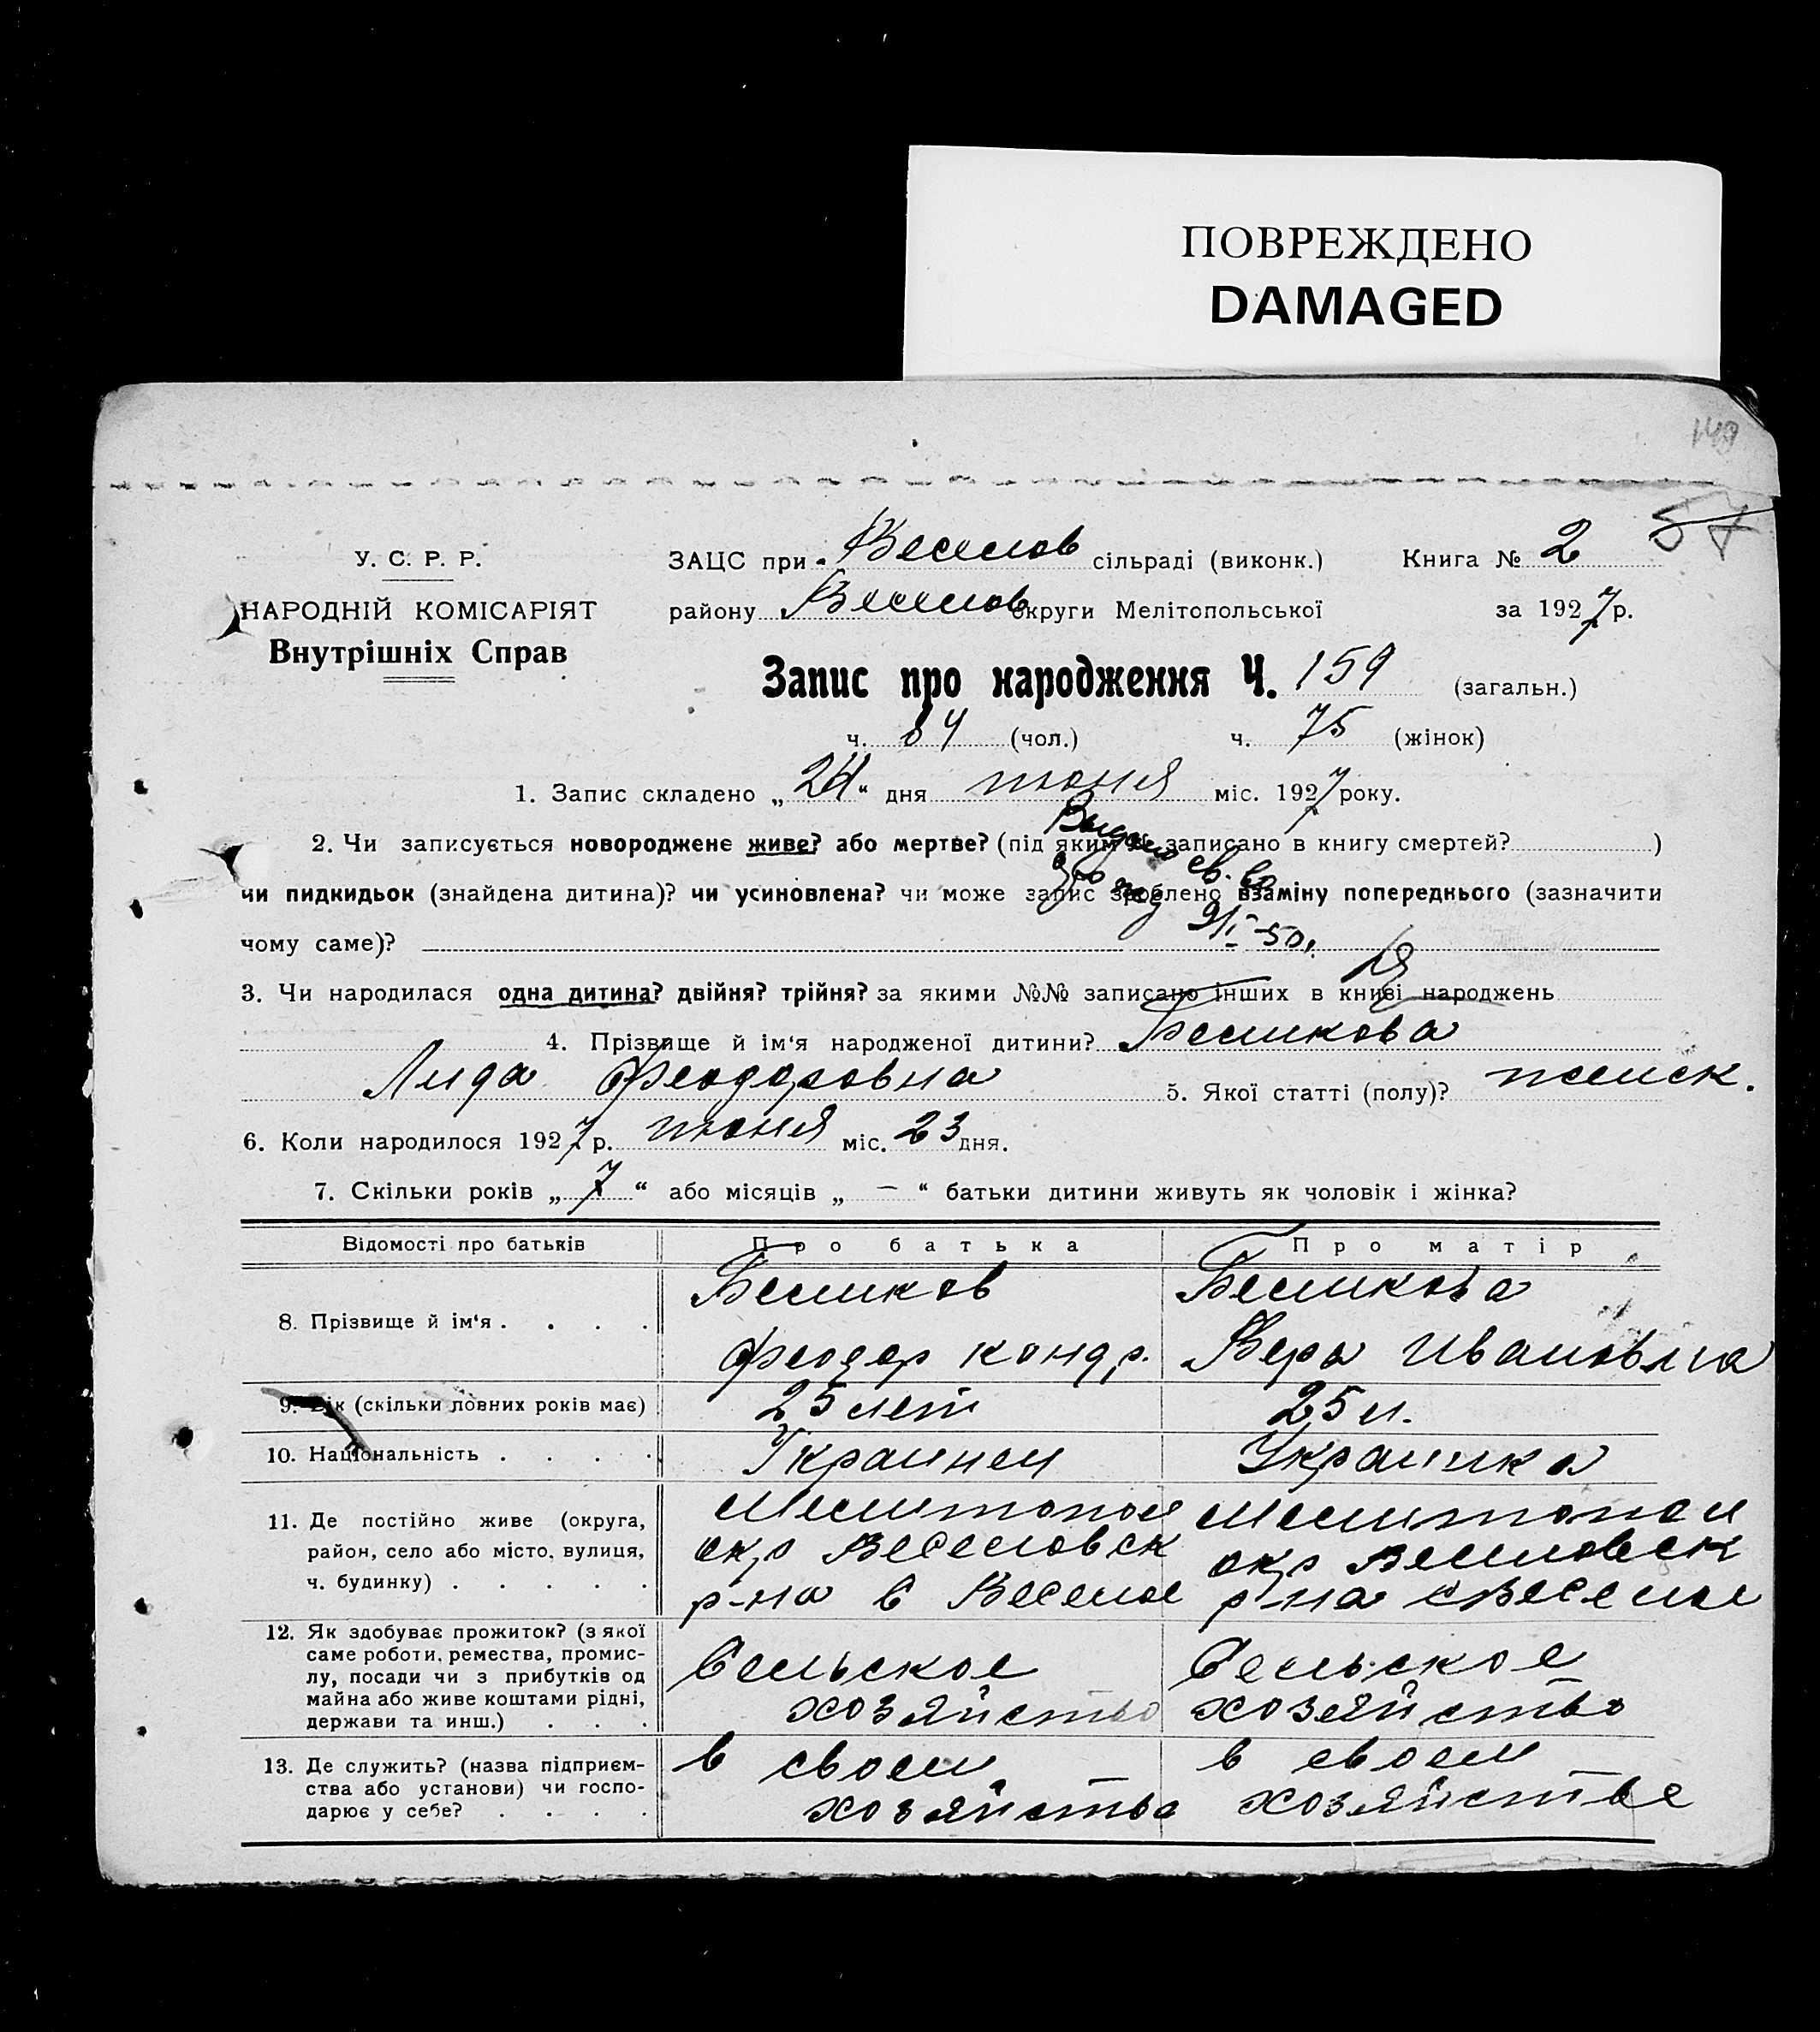 ПОВРЕЖДЕНО
DAMAGED
149
57
У. С. Р. Р.
НАРОДНІЙ КОМІСАРІЯТ
Внутрішніх Справ
ЗАЦС при Веселов сільраді (виконк.) Книга № 2
району Веселов округи Мелітопольської за 1927 р.
Запис про народження Ч. 159 (загальн.)
ч. 84 (чол.) ч. 75 (жінок)
1. Запис складено „24“ дня июня міс. 1927 року.
2. Чи записується новороджене живе? або мертве? (під яким № записано в книгу смертей? )
чи пидкидьок (знайдена дитина)? чи усиновлена? чи може запис зроблено взаміну попереднього (зазначити
чому саме)?
Выдано св.во
9/I-50.
3. Чи народилася одна дитина? двійня? трійня? за якими №№ записано інших в книзі народжень
4. Прізвище й ім‘я народженої дитини? Беликова
Лида Феодоровна 5. Якої статті (полу)? женск.
6. Коли народилося 1927 р. июня міс. 23 дня.
7. Скільки років „7“ або місяців „—“ батьки дитини живуть як чоловік і жінка?
Відомості про батьків Про батька Про матір
8. Прізвище й ім‘я . . . . Беликов Беликова
Феодор Кондр. Вера Ивановна
9. Вік (скільки повних років має) 25 лет 25 л.
10. Національність . . . . Украинец Украинка
11. Де постійно живе (округа, Мелитопол Мелитопол
район, село або місто, вулиця, окр Веселовск окр Веселовск
ч. будинку) . . . . . р-на с Веселое р-на с Веселое
12. Як здобуває прожиток? (з якої
саме роботи, ремества, промис- Сельское Сельское
лу, посади чи з прибутків од
майна або живе коштами рідні, хозяйство хозяйство
держави та инш.) . . .
13. Де служить? (назва підприєм- в своем в своем
ства або установи) чи госпо-
дарює у себе? . . . . хозяйстве хозяйстве